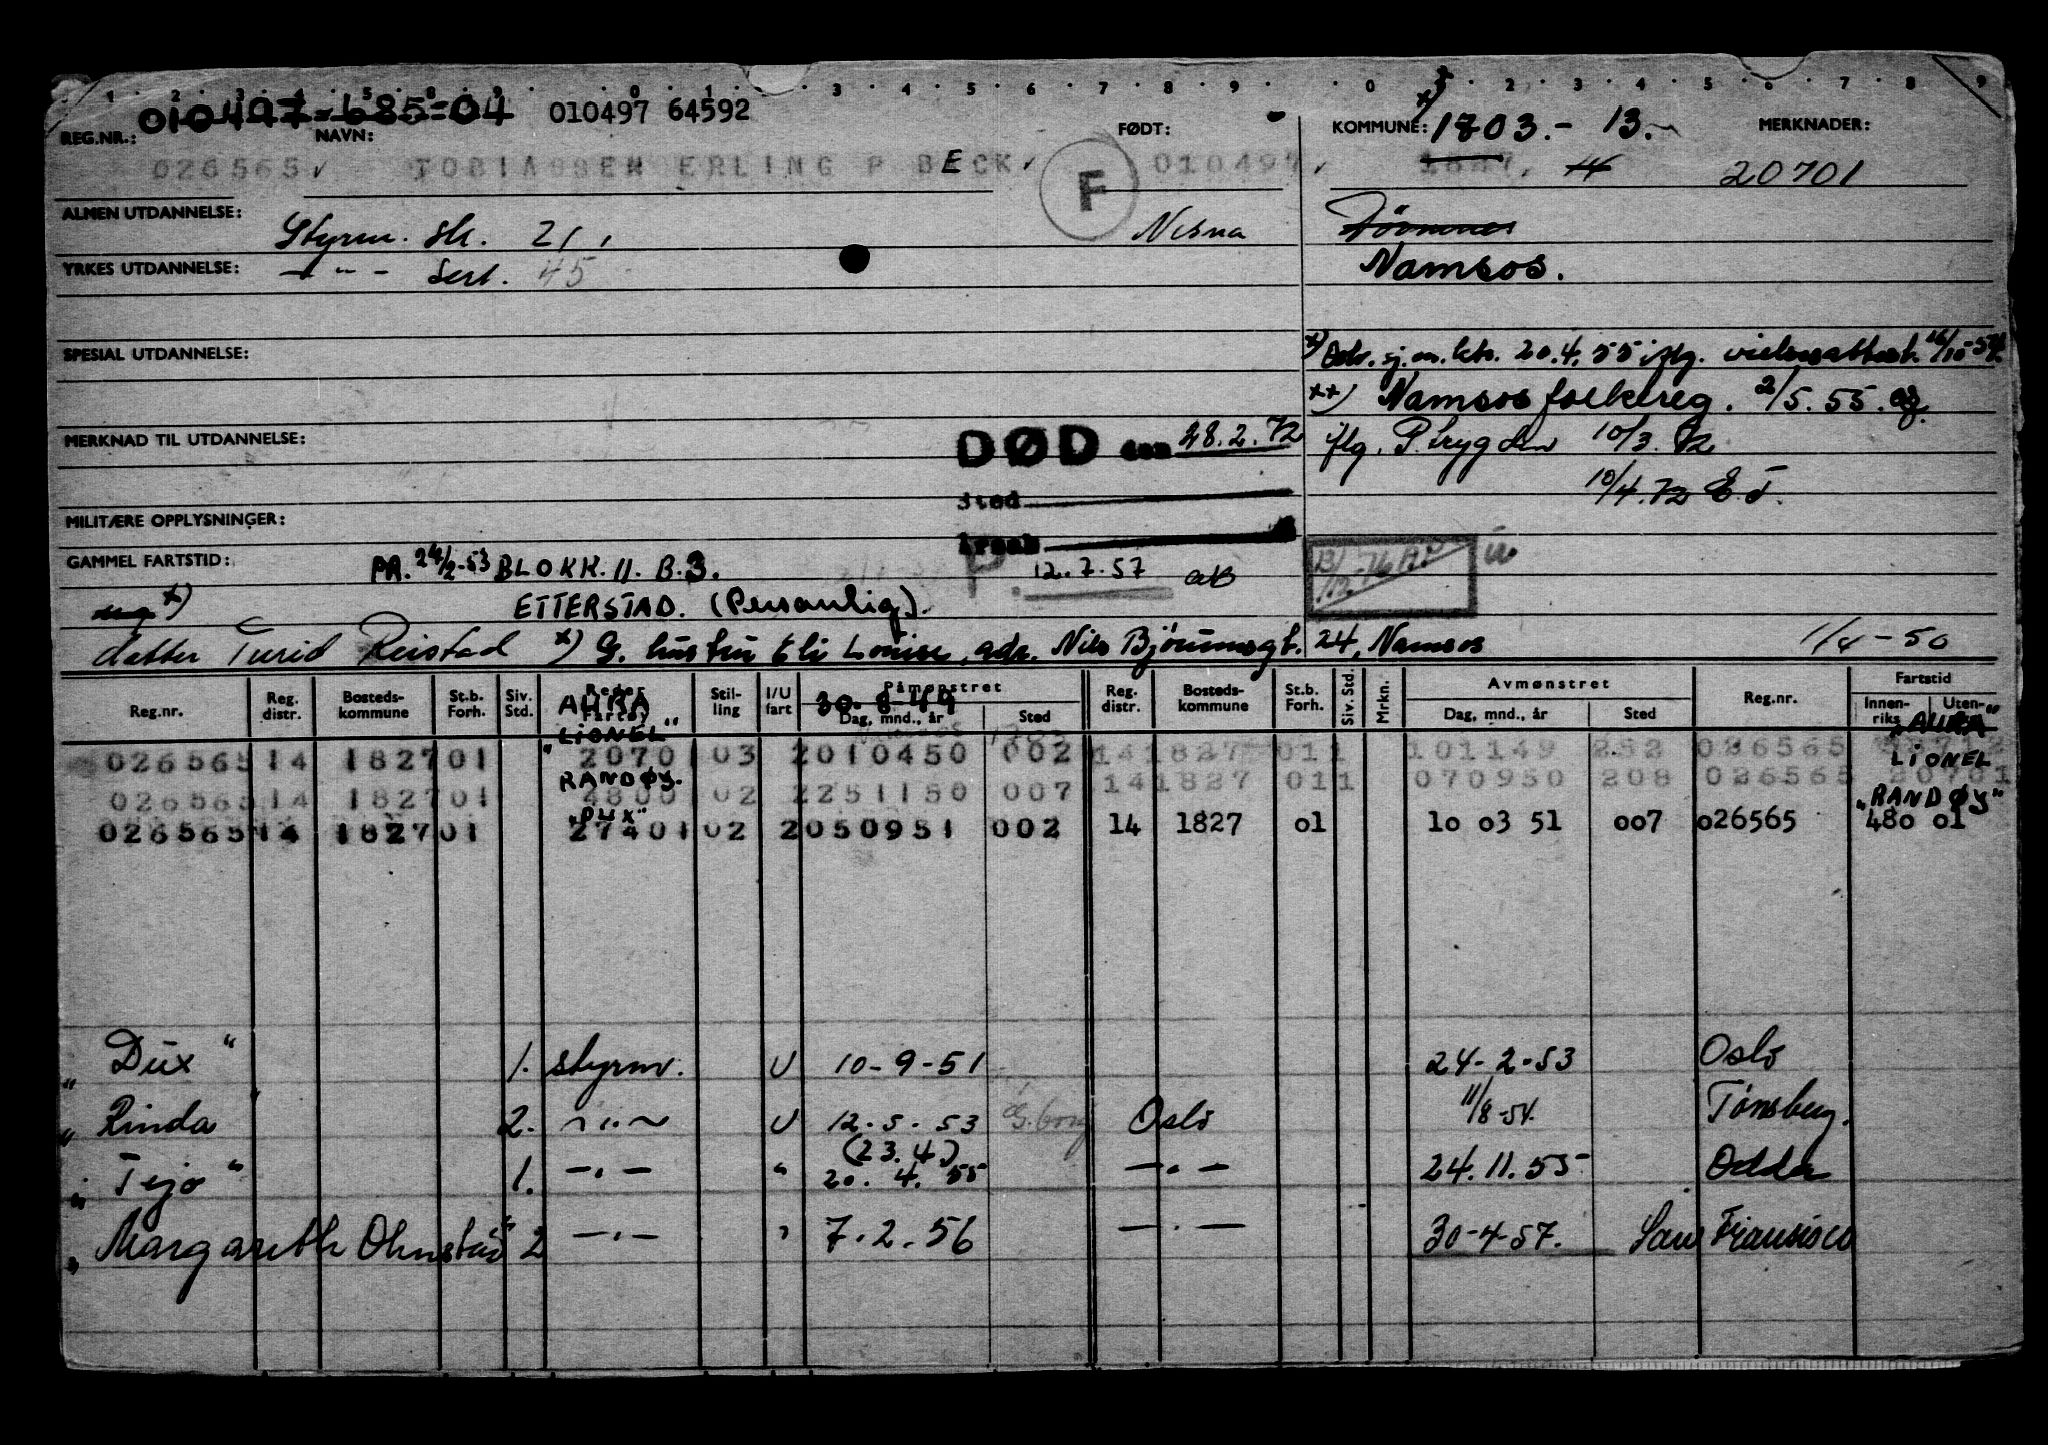 1 2 3 4 5 8 9 0 1 3 4 5 6 7 8 9 0 1 2 3 4 5 6 7 8 9
010497-685-04 010497 64592
REG.NR.: NAVN: FØDT: KOMMUNE: x) 1803.- 13. MERKNADER:
026565 TOBIASSEN ERLING P BECK F 010497 20701
ALMEN UTDANNELSE: Styrm. sk. 21, Nesna
YRKES UTDANNELSE: - " - sert. 45 Namsos.
SPESIAL UTDANNELSE: x) Adr. sj.m.ktr. 20.4.55 iflg. vielsesattest 16/10-54
xx) Namsos folkereg. 2/5.55.
MERKNAD TIL UTDANNELSE: DØD den 28.2.72 iflg. P.trygden 10/3.72
Sted 10/4.72 E.T.
MILITÆRE OPPLYSNINGER:
Årsak
GAMMEL FARTSTID: PR. 24/2-53 BLOKK. 11. B.3. P. 12.7.57
ETTERSTAD. (Personlig).
datter Turid Reistad x) G. hustru Eli Louise, adr. Nils Bjørumsgt. 24, Namsos 1/4-50
Reg.nr. Reg. distr. Bosteds-kommune St.b. Forh. Siv. Std. Reder Fartøy Stil-ling I/U fart Påmønstret Dag, mnd., år Sted Reg. distr. Bosteds-kommune St.b. Forh. Siv. Std Mrkn. Avmønstret Dag, mnd., år Sted Reg.nr. Fartstid Innen-riks Uten-
AURA 30-8-49 "AURA"
"LIONEL"
026565 14 1827 01 2070 1 03 2 010450 002 14 1827 01 1 101149 252 026565
LIONEL
RANDØY.
026565 14 1827 01 4800 1 02 2 251150 007 14 1827 01 1 070950 208 026565 20701
"RANDØY"
"DUX"
026565 14 1827 01 2740 1 02 2 050951 002 14 1827 01 10 03 51 007 026565 480 01
"Dux" 1. styrm. U 10-9-51 24-2-53 Oslo
"Rinda 2. -"- U 12.5.53 G.borg Oslo 11/8-54. Tønsberg.
(23.4.)
"Tejo" 1. -"- " 20.4.55 -"- 24.11.55 Odda
"Margareth Ohnstad" 2 -"- " 7.2.56 -"- 30-4-57. San Fransisco